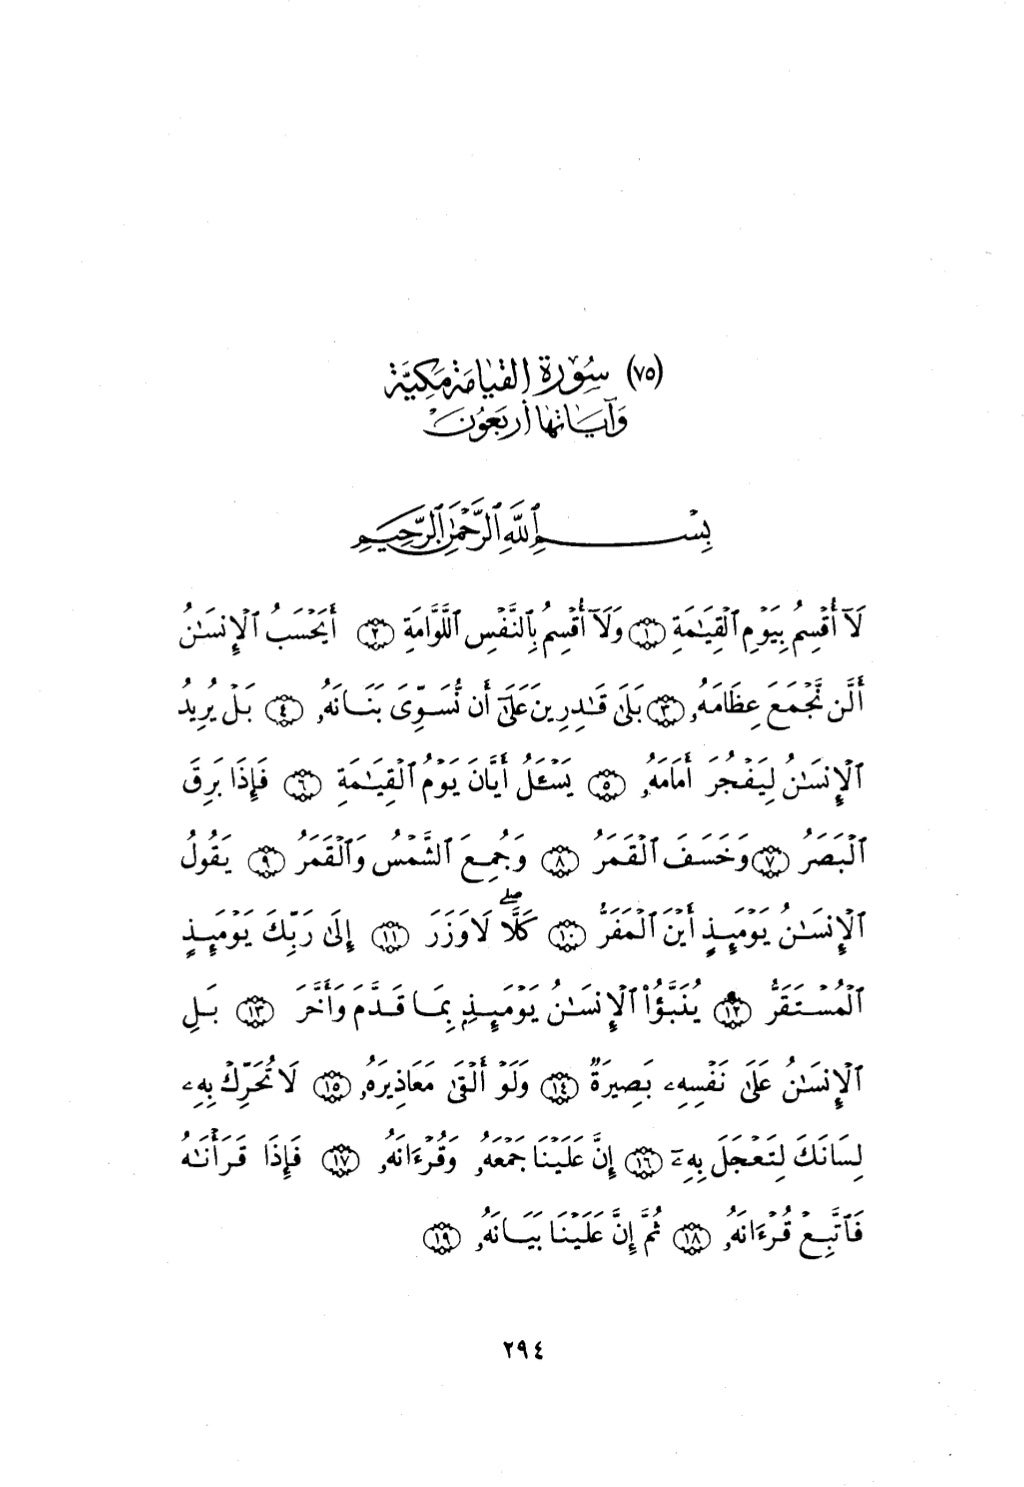 (٧٥) سُورَةُ القِيَامَةِ مَكِيَّة
وَآيَاتُهَا أَرْبَعُونَ
بِسْمِ ٱللَّهِ ٱلرَّحْمَٰنِ ٱلرَّحِيمِ
لَآ أُقْسِمُ بِيَوْمِ ٱلْقِيَٰمَةِ ﴿١﴾ وَلَآ أُقْسِمُ بِٱلنَّفْسِ ٱللَّوَّامَةِ ﴿٢﴾ أَيَحْسَبُ ٱلْإِنسَٰنُ
أَلَّن نَّجْمَعَ عِظَامَهُۥ ﴿٣﴾ بَلَىٰ قَٰدِرِينَ عَلَىٰٓ أَن نُّسَوِّىَ بَنَانَهُۥ ﴿٤﴾ بَلْ يُرِيدُ
ٱلْإِنسَٰنُ لِيَفْجُرَ أَمَامَهُۥ ﴿٥﴾ يَسْـَٔلُ أَيَّانَ يَوْمُ ٱلْقِيَٰمَةِ ﴿٦﴾ فَإِذَا بَرِقَ
ٱلْبَصَرُ ﴿٧﴾ وَخَسَفَ ٱلْقَمَرُ ﴿٨﴾ وَجُمِعَ ٱلشَّمْسُ وَٱلْقَمَرُ ﴿٩﴾ يَقُولُ
ٱلْإِنسَٰنُ يَوْمَئِذٍ أَيْنَ ٱلْمَفَرُّ ﴿١٠﴾ كَلَّا ۖ لَا وَزَرَ ﴿١١﴾ إِلَىٰ رَبِّكَ يَوْمَئِذٍ
ٱلْمُسْتَقَرُّ ﴿١٢﴾ يُنَبَّؤُا۟ ٱلْإِنسَٰنُ يَوْمَئِذٍۭ بِمَا قَدَّمَ وَأَخَّرَ ﴿١٣﴾ بَلِ
ٱلْإِنسَٰنُ عَلَىٰ نَفْسِهِۦ بَصِيرَةٌ ﴿١٤﴾ وَلَوْ أَلْقَىٰ مَعَاذِيرَهُۥ ﴿١٥﴾ لَا تُحَرِّكْ بِهِۦ
لِسَانَكَ لِتَعْجَلَ بِهِۦٓ ﴿١٦﴾ إِنَّ عَلَيْنَا جَمْعَهُۥ وَقُرْءَانَهُۥ ﴿١٧﴾ فَإِذَا قَرَأْنَٰهُ
فَٱتَّبِعْ قُرْءَانَهُۥ ﴿١٨﴾ ثُمَّ إِنَّ عَلَيْنَا بَيَانَهُۥ ﴿١٩﴾
٢٩٤